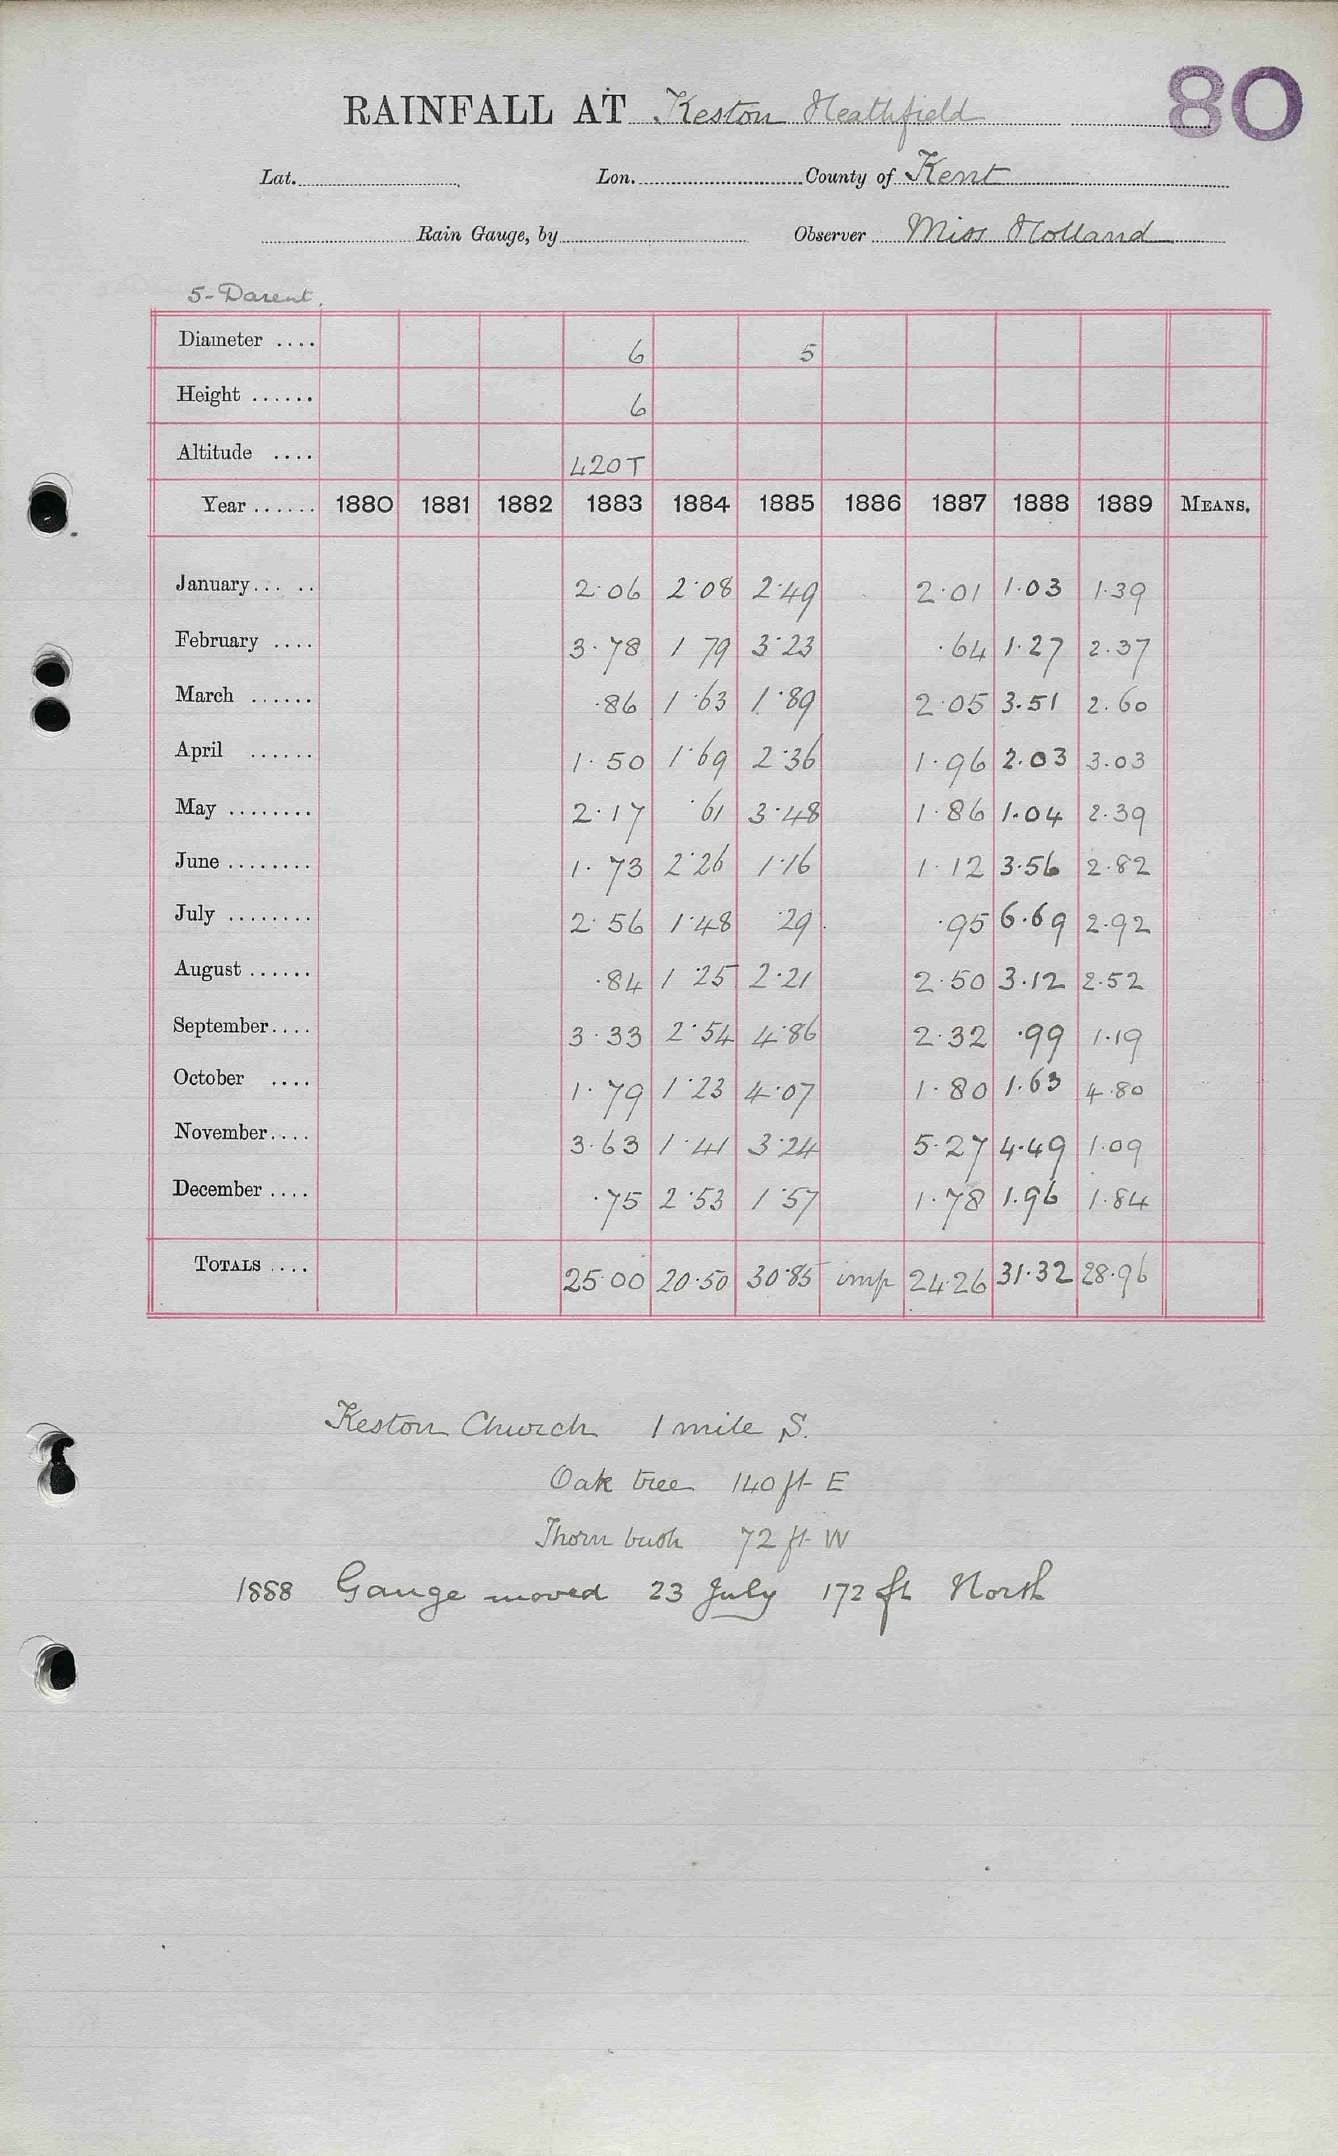 RAINFALL AT Keston Heathfield 80
Lat. Lon. County of Kent
Rain Gauge, by Observer Miss Holland
5-Darent.
Diameter .... 6 5
Height ...... 6
Altitude .... 420T
Year ...... 1880 1881 1882 1883 1884 1885 1886 1887 1888 1889 MEANS.
January... .. 2.06 2.08 2.49 2.01 1.03 1.39
February .... 3.78 1 79 3.23 .64 1.27 2.37
March ...... .86 1.63 1.89 2.05 3.51 2.60
April ...... 1.50 1.69 2.36 1.96 2.03 3.03
May ........ 2.17 .61 3.48 1.86 1.04 2.39
June ........ 1.73 2.26 1.16 1.12 3.56 2.82
July ........ 2.56 1.48 .29 .95 6.69 2.92
August ...... .84 1.25 2.21 2.50 3.12 2.52
September.... 3.33 2.54 4.86 2.32 .99 1.19
October .... 1.79 1.23 4.07 1.80 1.63 4.80
November.... 3.63 1.41 3.24 5.27 4.49 1.09
December .... .75 2.53 1.57 1.78 1.96 1.84
TOTALS .... 25.00 20.50 30.85 imp 24.26 31.32 28.96
Keston Church 1 mile S.
Oak tree 140 ft E
Thorn bush 72 ft W
1888 Gauge moved 23 July 172 ft North